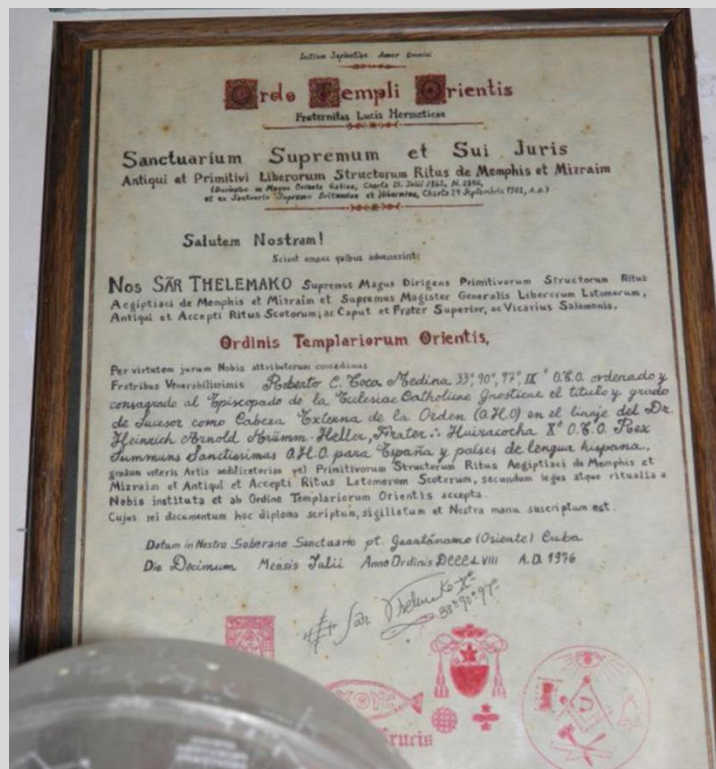 Initium Sapientiae Amor Domini
Ordo Templi Orientis
Fraternitas Lucis Hermeticae
Sanctuarium Supremum et Sui Juris
Antiqui et Primitivi Liberorum Structorum Ritus de Memphis et Mizraim
Salutem Nostram!
Sciant omnes quibus advenerint:
Nos SÂR THELEMAKO Supremus Magus Dirigens Primitivorum Structorum Ritus
Aegiptiaci de Memphis et Mitraim et Supremus Magister Generalis Liberorum Latomorum,
Antiqui et Accepti Ritus Scotorum; ac Caput et Frater Superior, ac Vicarius Salomonis,
Ordinis Templariorum Orientis,
Per virtutem jurum Nobis attributorum concedimus
Fratribus Venerabilissimis Roberto C. Toca Medina 33°, 90°, 97°, IX° O.T.O. ordenado y
consagrado al Episcopado de la Eclesiae Catholicae Gnosticae el título y grado
de Sucesor como Cabeza Externa de la Orden (O.H.O) en el linaje del Dr.
Heinrich Arnold Krümm-Heller, Frater ∴ Huiracocha X° O.T.O Rex
Summuns Sanctissimas O.H.O para España y países de lengua hispana.
gradum veteris Artis aedificatoriae vel Primitivorum Structorum Ritus Aegiptiaci de Memphis et
Mizraim et Antiqui et Accepti Ritus Latomorem Scotorum, secundum leges atque ritualia a
Nobis instituta et ab Ordine Templariorum Orientis accepta.
Cujus rei documentum hoc diploma scriptum, sigillatum et Nostra manu suscriptum est.
Datum in Nostro Soberano Sanctuario pt. Guantánamo (Oriente) Cuba
Die Decimum Mensis Julii Anno Ordinis DCCCLVIII A.D. 1976
Sâr Thelemako X°
33° 90° 97°
Crucis